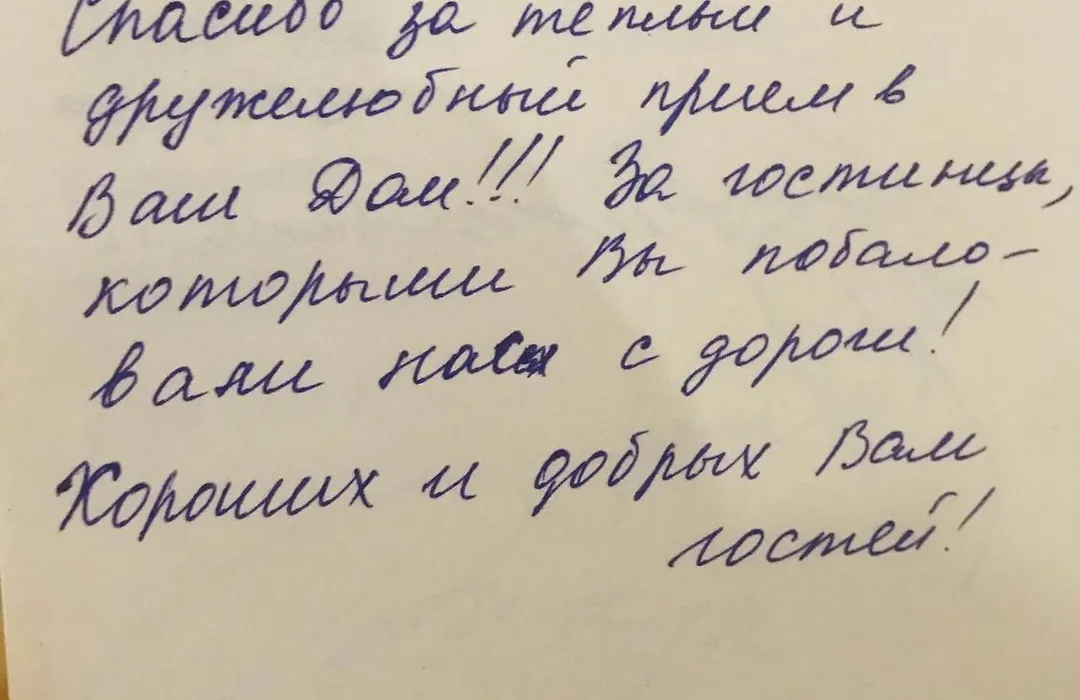 Спасибо за теплый и
дружелюбный прием в
Ваш Дом!!! За гостинцы,
которыми Вы побало-
вали нас с дороги!
Хороших и добрых Вам
гостей!